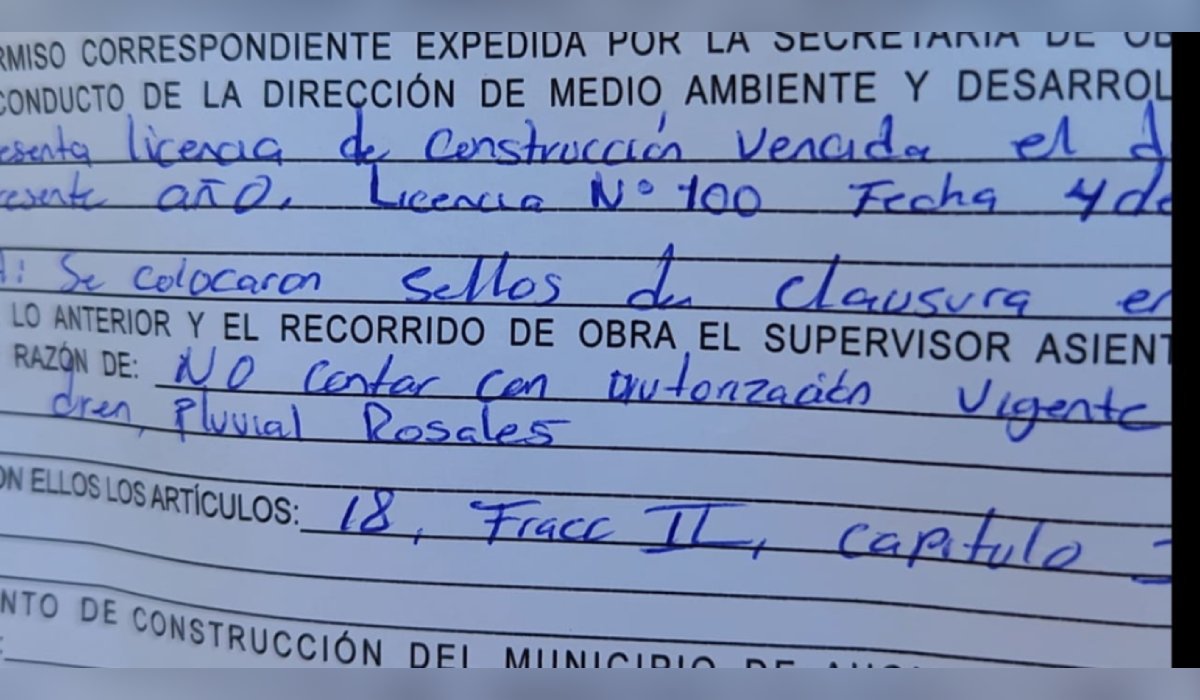 RMISO CORRESPONDIENTE EXPEDIDA POR LA SECRETARIA DE OB
CONDUCTO DE LA DIRECCIÓN DE MEDIO AMBIENTE Y DESARROL
esenta licencia de Construcción Vencida el d
resente año. Licencia N° 100 Fecha 4 de
: Se colocaron sellos de clausura en
LO ANTERIOR Y EL RECORRIDO DE OBRA EL SUPERVISOR ASIENT
RAZÓN DE: NO contar con autorización Vigente
dren, Pluvial Rosales
ON ELLOS LOS ARTÍCULOS: 18, Fracc II, capitulo
NTO DE CONSTRUCCIÓN DEL MUNICIPIO DE